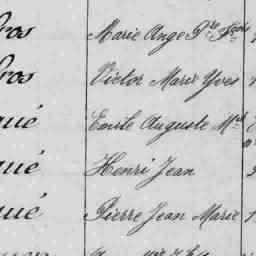 ros Marie Ange Pre
ros Victor Marie Yves
qué Emile Auguste Mel
qué Henri Jean
qué Pierre Jean Marie